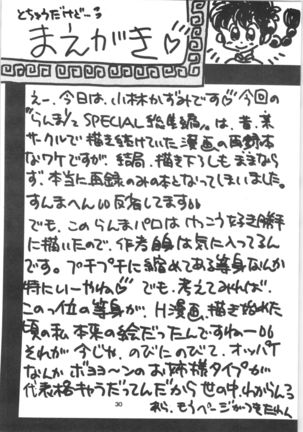 とちゅうだけど…
まえがき♡
えー、今日は、小林かずみです♡今回の
「らんま½SPECIAL総集編」は、昔、某
サークルで描き続けていた漫画の再録本
なワケですが、結局、描き下ろしもままなら
ず、本当に再録のみの本となってしまいました。
すんまへん 反省してます
でも、このらんまパロはけっこう好き勝手
に描いたので、作者自身は気に入ってるん
です。プチプチに縮めてある等身なんか
特にいーやね♡でも、考えてみれば、
このっ位の等身が、H漫画、描き始めた
頃の私本来の絵だったんですねー
それが今じゃ、のびにのびて、オッパイ
なんかボヨヨ〜ンのお姉様タイプが
代表格キャラだってんだから世の中、わからんろ
あら、もうページがつきたわん
30